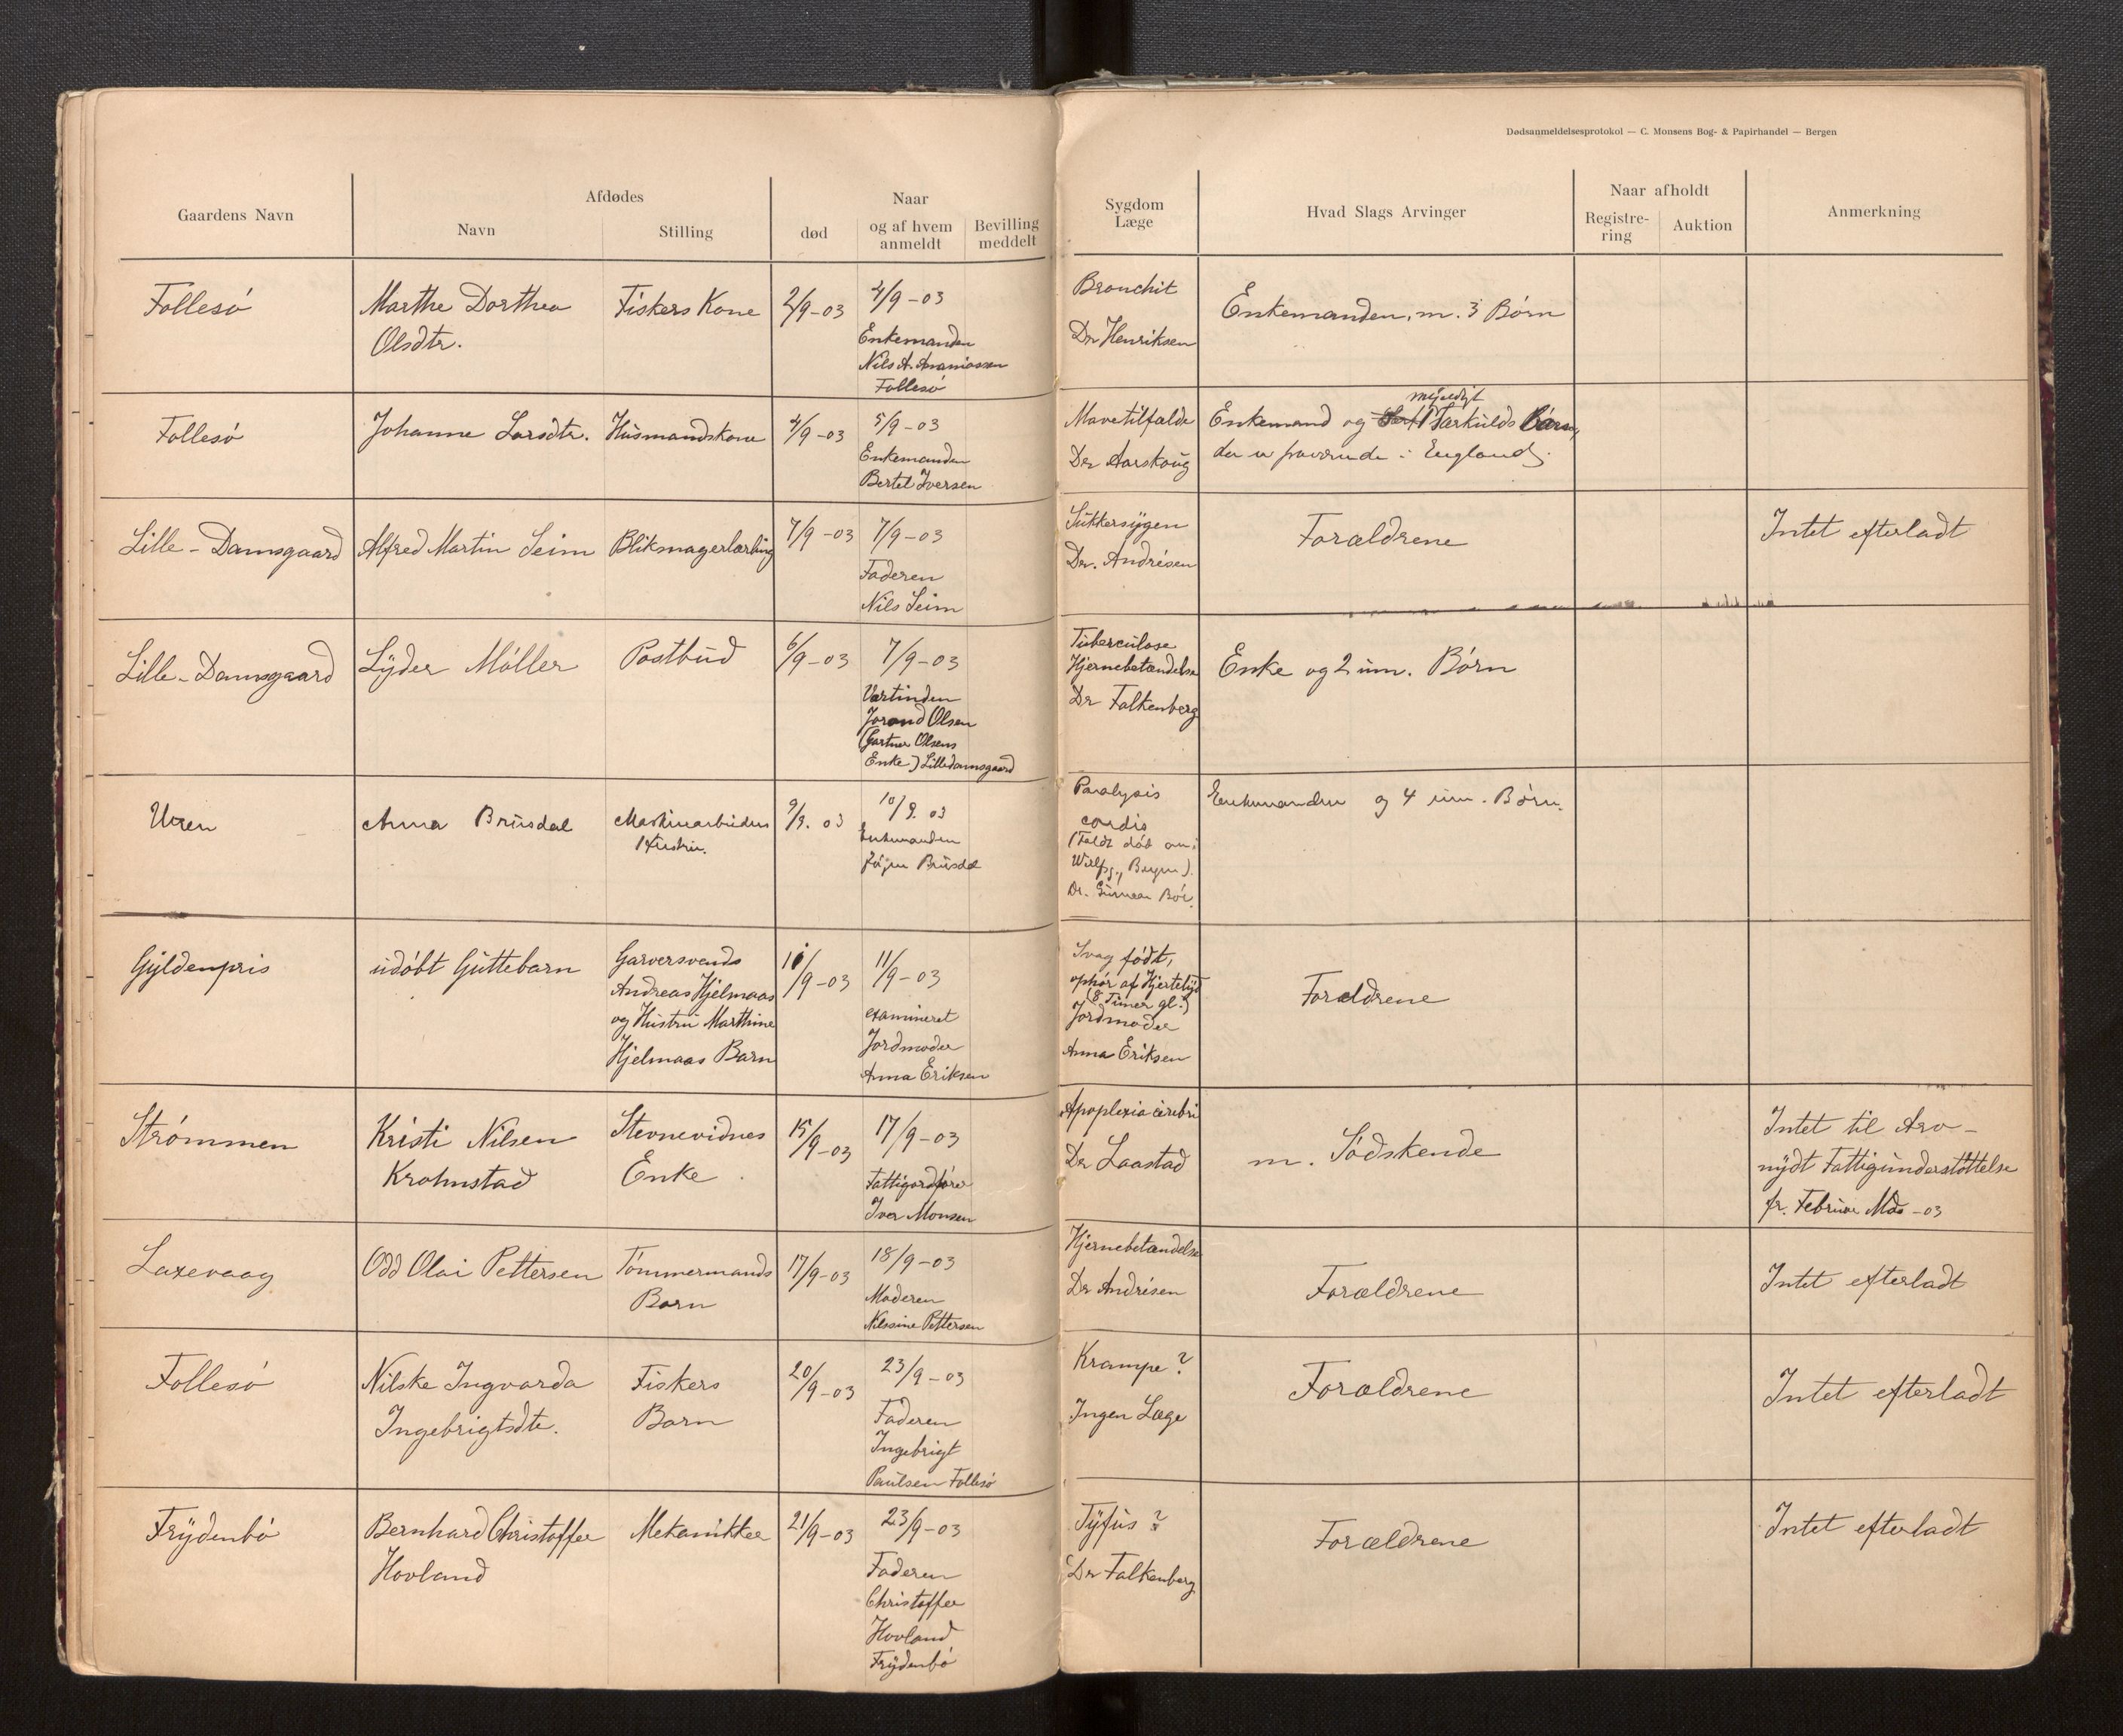 Dødsanmeldelsesprotokol — C. Monsens Bog- & Papirhandel — Bergen
Gaardens Navn
Afdødes
Navn
Stilling
død
Naar
og af hvem
anmeldt
Bevilling
meddelt
Sygdom
Læge
Hvad Slags Arvinger
Naar afholdt
Registre-
ring
Auktion
Anmerkning
Follesø
Marthe Dorthea
Olsdtr.
Fiskers Kone
2/9-03
4/9-03
Enkemanden
Nils A. Ananiassen
Follesø
Bronchit
Dr Henriksen
Enkemanden, m. 3 Børn
Follesø
Johanne Larsdtr.
Husmandskone
4/9-03
5/9-03
Enkemanden
Bertel Iversen
Mavetilfælde
Dr Aarskoug
myndigt
Enkemand og 1 Særkulds Barn,
der er fraværende i England.
Lille-Damsgaard
Alfred Martin Seim
Blikmagerlærling
7/9-03
7/9-03
Faderen
Nils Seim
Sukkersygen
Dr. Andrésen
Forældrene
Intet efterladt
Lille-Damsgaard
Lyder Møller
Postbud
6/9-03
7/9-03
Værtinden
Jorand Olsen
(Gartner Olsens
Enke) Lilledamsgaard
Tuberculose
Hjernebetændelse
Dr Falkenberg
Enke og 2 um. Børn
Uren
Anna Brusdal
Maskinarbeiders
Hustru.
9/9. 03
10/9. 03
Enkemanden
Brusdal
Paralysis
cordis
(Faldt død om i
Bergen).
Dr.
Enkemanden og 4 um. Børn.
Gyldenpris
udøbt Guttebarn
Garversvends
Andreas Hjelmaas
og Hustru Marthine
Hjelmaas Barn
11/9-03
11/9-03
examineret
Jordmoder
Anna Eriksen
Svag født,
ophør af Hjertelyd
(8 Timer gl.)
Jordmoder
Anna Eriksen
Forældrene
Strømmen
Kristi Nilsen
Krohnstad
Stevnevidnes
Enke
15/9-03
17/9-03
Fattigordfører
Iver Monsen
Apoplexia cerebri
Dr Laastad
m. Sødskende
Intet til Arv-
nydt Fattigunderstøttelse
fr. Februar Md -03
Laxevaag
Odd Olai Pettersen
Tømmermands
Barn
17/9-03
18/9-03
Moderen
Nilssine Pettersen
Hjernebetændelse
Dr Andrésen
Forældrene
Intet efterladt
Follesø
Nilske Ingvarda
Ingebrigtsdtr.
Fiskers
Barn
20/9-03
23/9-03
Faderen
Ingebrigt
Paulsen Follesø
Krampe?
Ingen Læge
Forældrene
Intet efterladt
Frydenbø
Bernhard Christoffer
Hovland
Mekanikker
21/9-03
23/9-03
Faderen
Christoffer
Hovland
Frydenbø
Tyfus?
Dr Falkenberg
Forældrene
Intet efterladt